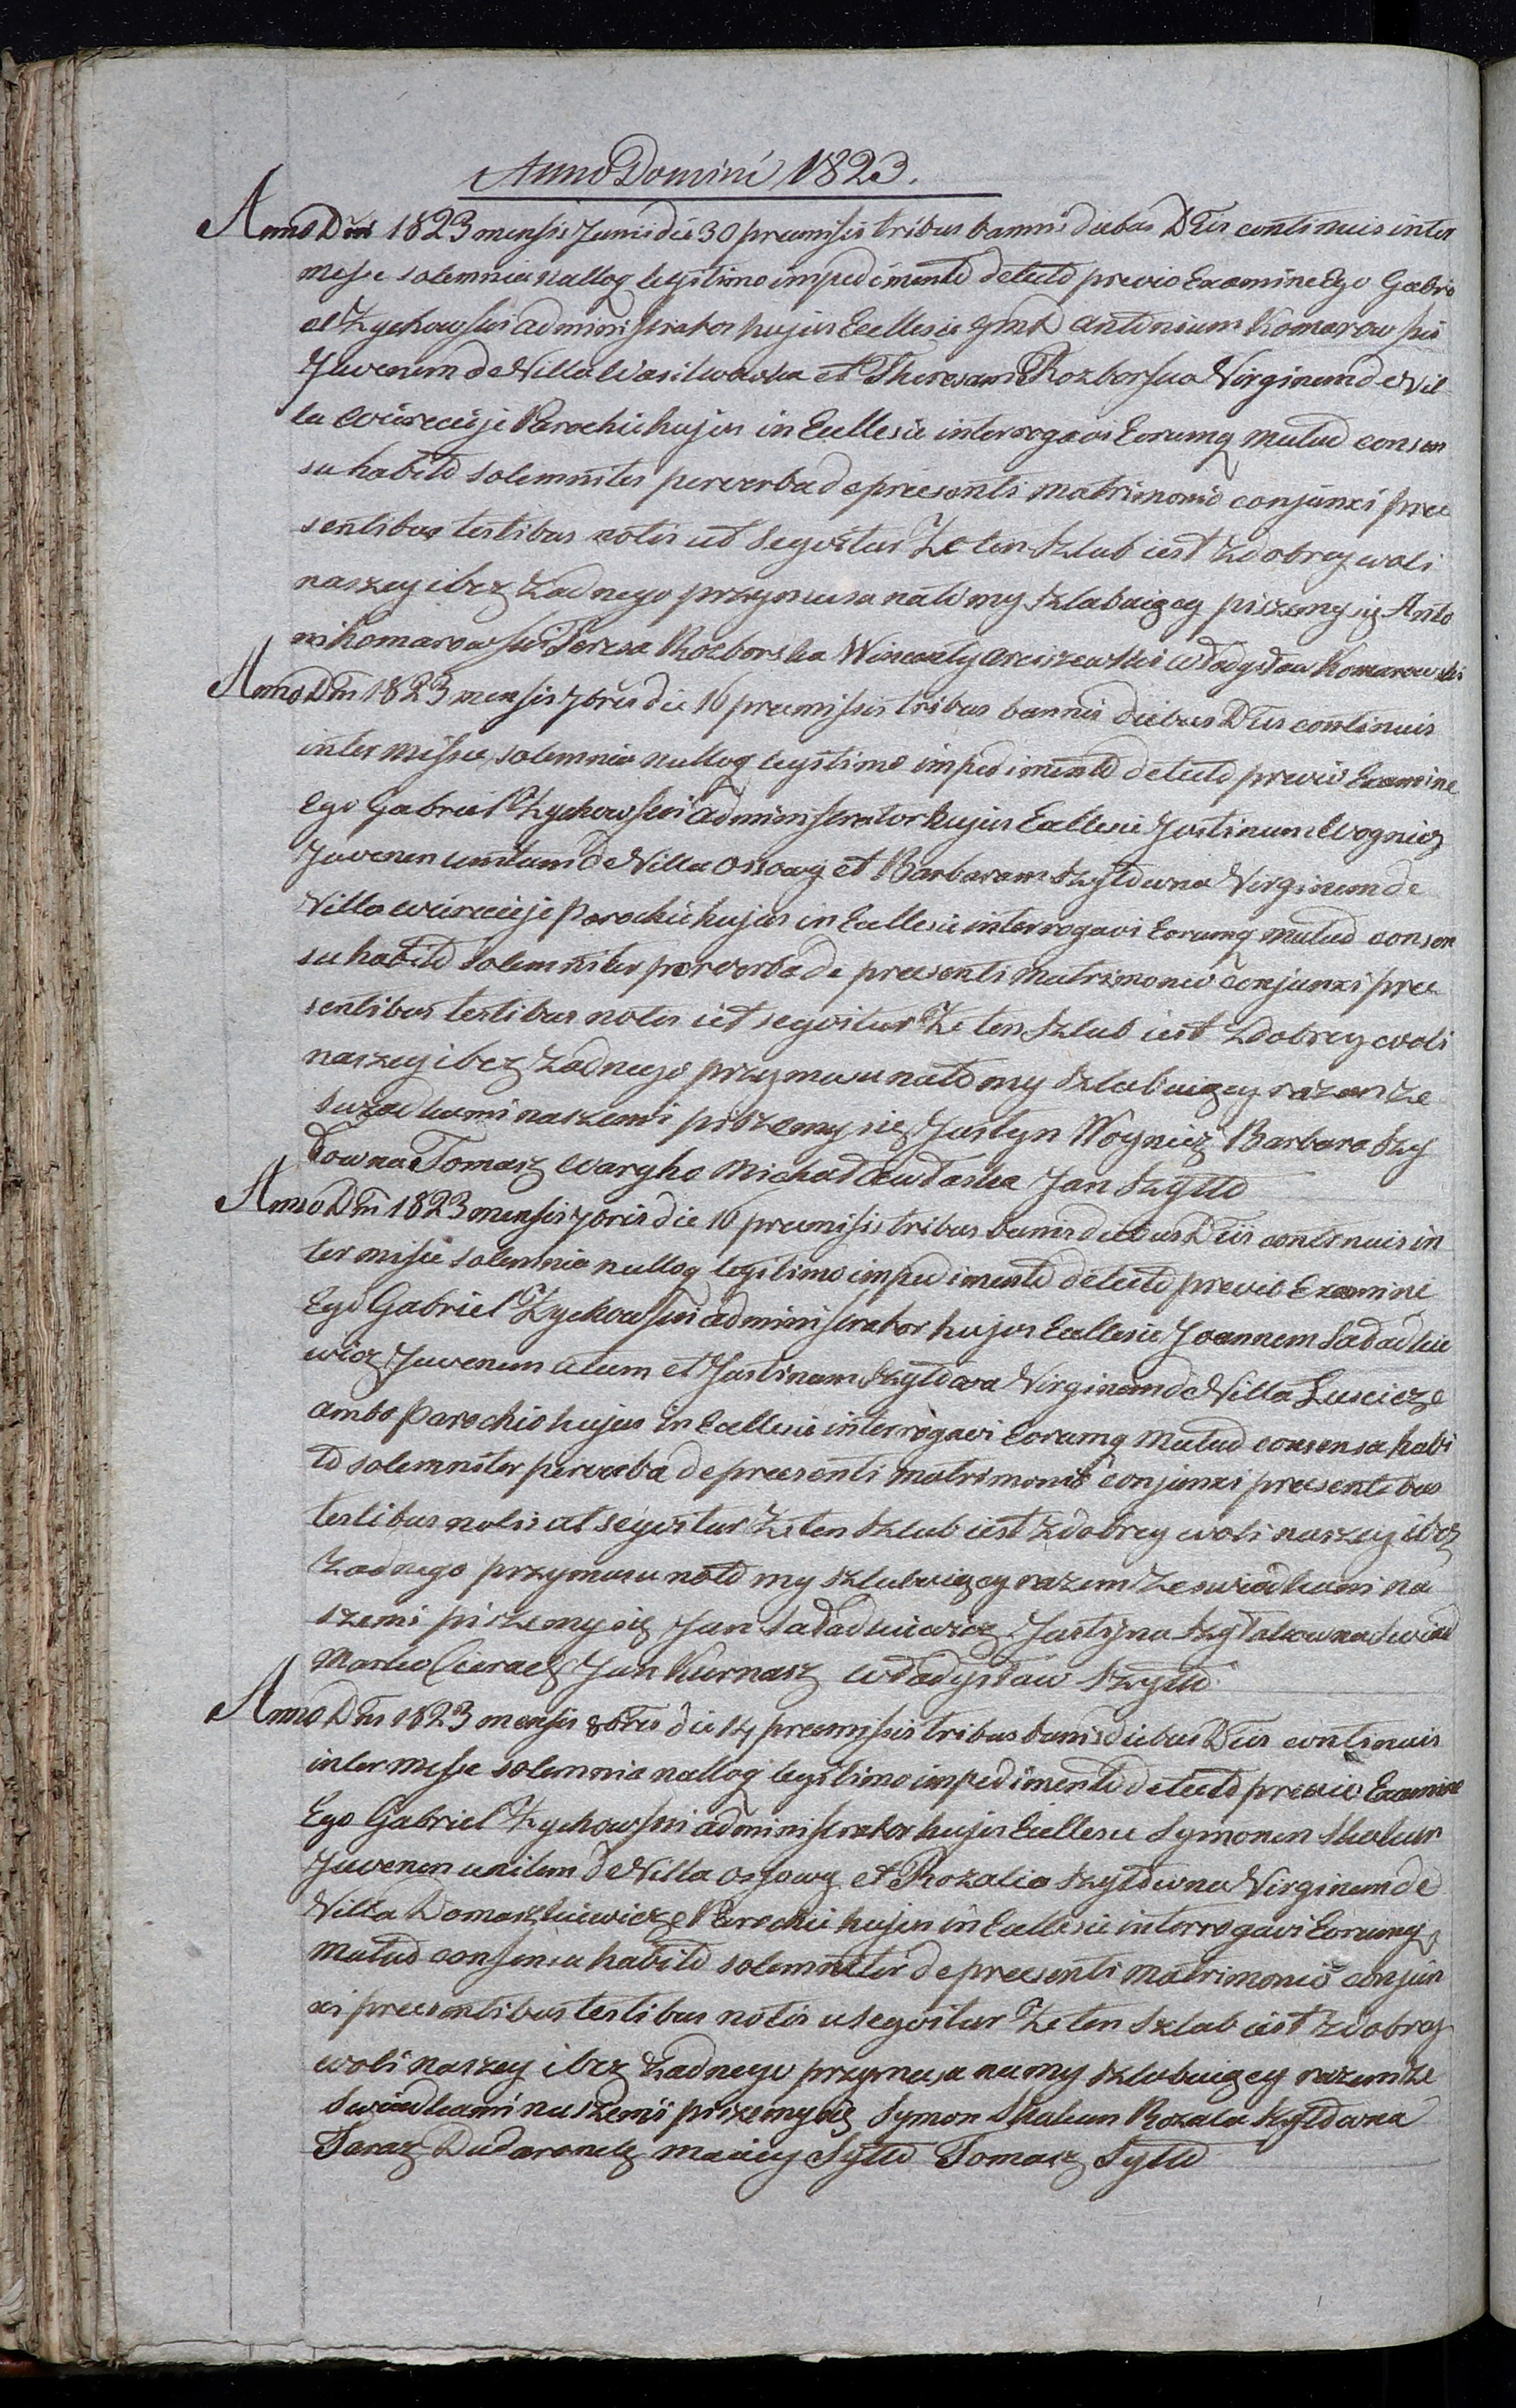 Anno Domini 1823.
Anno Dni 1823 mensis Junii die 30 premissis tribus bannis diebus Dtis continuis inter
misse solemnia nulloq legitimo impedimento detecto previo Examine Ego Gabri
el Zychowski administrator hujus Ecclesie Antonium Komarowski
Juvenem de Villa Wasilwowka et Theresam Rozborska Virginem de Vil
la Parochie hujus in Ecclesie interrogavi Eorumq mutuo consen
su habito solemniter per verba de preesenti matrimonio conjunxi pree
sentibus testibus notis ut segvitur Ze ten szlub iest z dobrey woli
naszey i bez zadnego przymusu nato my szlubuięcy piszemy się Anto
ni Komarowski Teresa Rozborska Wincenty Arciszewski Władysław Komarowski
Anno Dni 1823 mensis 7bris die 16 preemissis tribus bannis diebus Dtis continuis
inter misse solemnia nulloq legitimo impedimento detecto previo Examine
Ego Gabriel Zychowski administrator hujus Ecclesie Justinum Wognicz
Juvenem unitum de Villa Ossowy et Barbaram Szyłowna Virginem de
Villa Parochie hujus in Ecclesie interrogavi Eorumq mutuo consen
su habito solemniter per verba de preesenti matrimonio conjunxi pree
sentibus testibus notis ut segvitur Ze ten szlub iest z dobrey woli
naszey i bez zadnego przymusu nato my szlubuięcy razem ze
swiadkami naszemi piszemy się Justyn Woynicz Barbara Szy
łowna Tomasz Wargho Michał Jan Szyłło
Anno Dni 1823 mensis 7bris die 16 preemissis tribus banis diebus Dtis continuis in
ter misse solemnia nulloq legitimo impedimento detecto previo Examine
Ego Gabriel Zychowski administrator hujus Ecclesie Joannem Saładkie
wicz Juvenem et Justinam Szyłowa Virginem de Villa Luscicze
ambo Parochie hujus in Ecclesie interrogavi Eorumq mutuo consensu habi
to solemniter per verba de preesenti matrimonio conjunxi preesentibus
testibus notis ut segvitur Ze ten szlub iest z dobrey woli naszey i bez
zadnego przymusu nato my szlubuięcy razem ze swiadkami na
szemi piszemy się Jan Saładkiewicz Justyna Szyłałowna Swiad
Marko Jan Kurnasz Władysław Szyłło
Anno Dni 1823 mensis 8bris die 14 preemissis tribus banis diebus Dtis continuis
inter misse solemnia nulloq legitimo impedimento detecto previo Examine
Ego Gabriel Zychowski administrator hujus Ecclesie Symonem Skakun
Juvenem unitum de Villa Ossowy et Rozalia Szyłowna Virginem de
Villa Domaszkiewicze Parochie hujus in Ecclesie interrogavi Eorumq
mutuo consensu habito solemniter de preesenti matrimonio conjun
xi preesentibus testibus notis u segvitur Ze ten szlub iest z dobrey
woli naszey i bez zadnego przymusu na my szlubuięcy razem ze
swiadkami naszemi piszemy się Symon Skakun Rozala Szyłowna
Taraz Maciey Syłło Tomasz Syłło